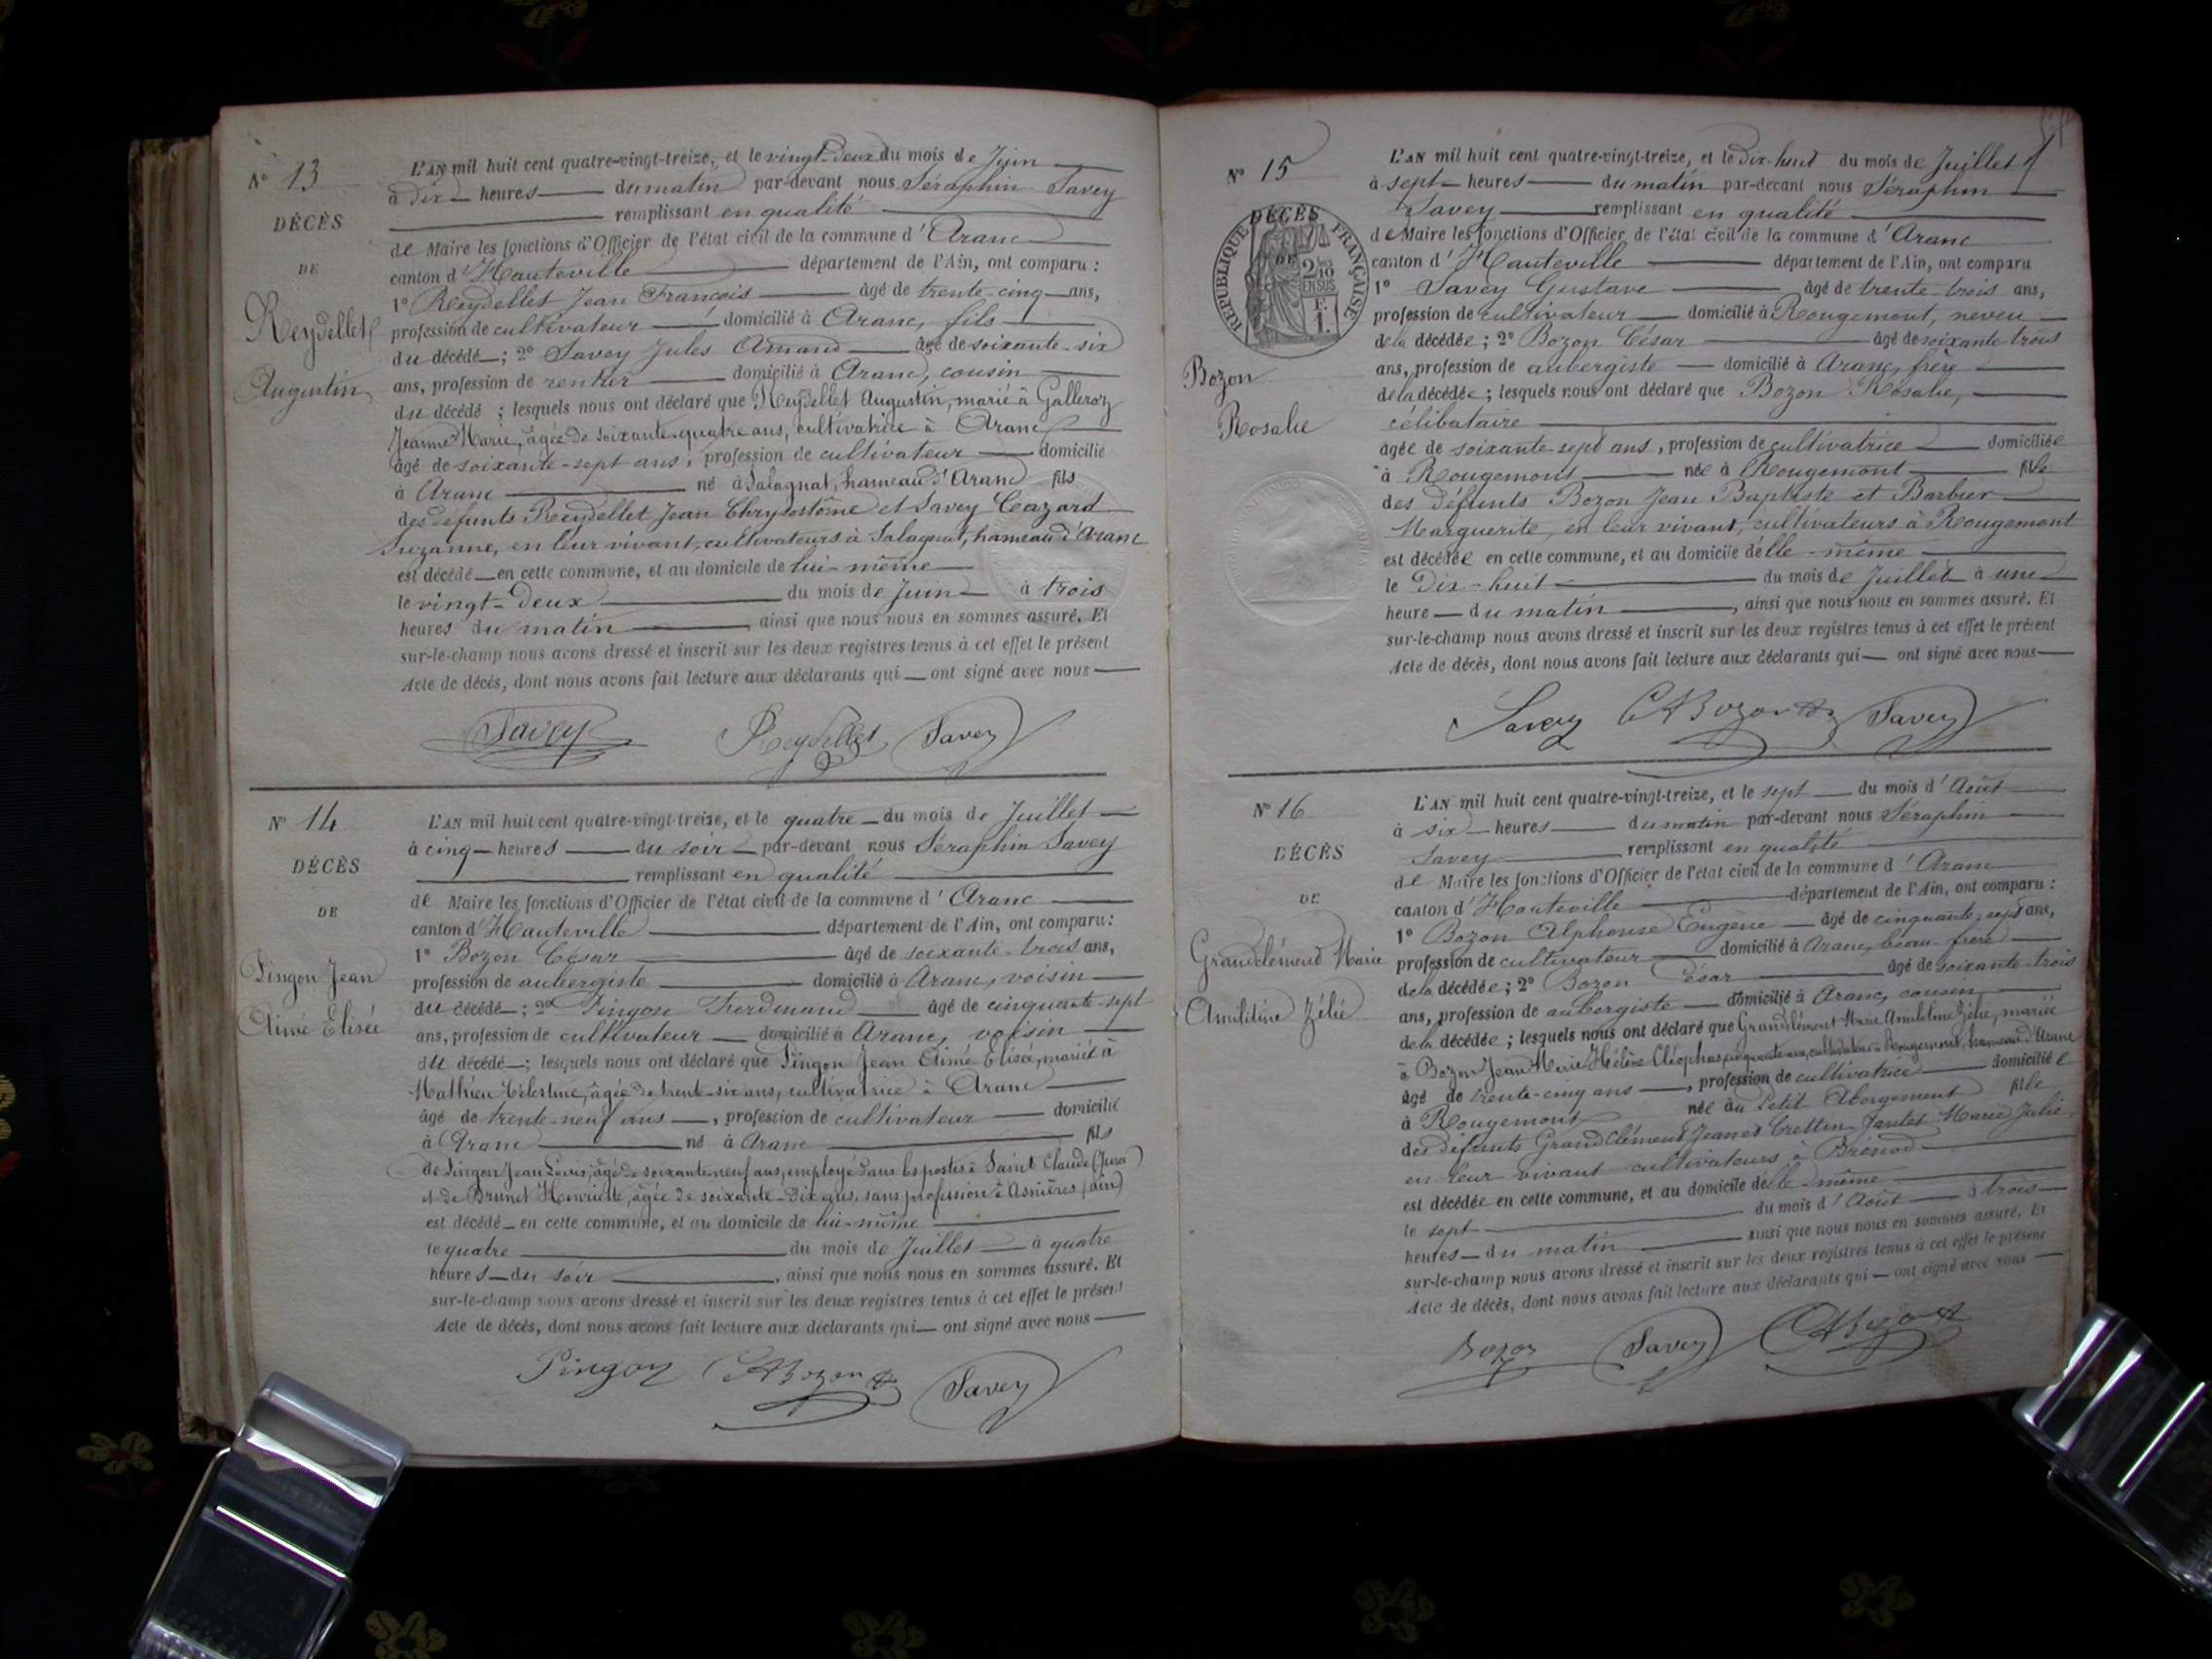 N° 13
DÉCÈS
DE
Reydellet
Augustin
L'AN mil huit cent quatre-vingt-treize, et le vingt-deux du mois de Juin
à dix heures du matin par-devant nous Séraphin Savey
remplissant en qualité
de Maire les fonctions d'Officier de l'état civil de la commune d'Aranc
canton d'Hauteville département de l'Ain, ont comparu :
1° Reydellet Jean François âgé de trente-cinq ans,
profession de cultivateur domicilié à Aranc, fils
du décédé ; 2° Savey Jules Amand âgé de soixante-six
ans, profession de rentier domicilié à Aranc, cousin
du décédé ; lesquels nous ont déclaré que Reydellet Augustin, marié à
Jeanne Marie, âgée de soixante-quatre ans, cultivatrice à Aranc
âgé de soixante-sept ans, profession de cultivateur domicilié
à Aranc né à Salagnat, hameau d'Aranc fils
des défunts Reydellet Jean Chrysostôme et Savey Cazard
Suzanne, en leur vivant, cultivateurs à Salagnat, hameau d'Aranc
est décédé en cette commune, et au domicile de lui-même
le vingt-deux du mois de Juin à trois
heures du matin, ainsi que nous nous en sommes assuré. Et
sur-le-champ nous avons dressé et inscrit sur les deux registres tenus à cet effet le présent
Acte de décès, dont nous avons fait lecture aux déclarants qui ont signé avec nous
Savey Reydellet Savey
N° 14
DÉCÈS
DE
Pingon Jean
Aimé Elisée
L'AN mil huit cent quatre-vingt-treize, et le quatre du mois de Juillet
à cinq heures du soir par-devant nous Séraphin Savey
remplissant en qualité
de Maire les fonctions d'Officier de l'état civil de la commune d'Aranc
canton d'Hauteville département de l'Ain, ont comparu :
1° Bozon César âgé de soixante-trois ans,
profession de aubergiste domicilié à Aranc, voisin
du décédé ; 2° Pingon Ferdinand âgé de cinquante-sept
ans, profession de cultivateur domicilié à Aranc, voisin
du décédé ; lesquels nous ont déclaré que Pingon Jean Aimé Elisée, marié à
Mathieu Célestine, âgée de trente-six ans, cultivatrice à Aranc
âgé de trente-neuf ans, profession de cultivateur domicilié
à Aranc né à Aranc fils
de Pingon Jean Louis, âgé de soixante neuf ans, employé dans les postes à Saint Claude (Jura)
et de Brunet Henriette, âgée de soixante-dix ans, sans profession à Asnières (Ain)
est décédé en cette commune, et au domicile de lui-même
le quatre du mois de Juillet à quatre
heures du soir, ainsi que nous nous en sommes assuré. Et
sur-le-champ nous avons dressé et inscrit sur les deux registres tenus à cet effet le présent
Acte de décès, dont nous avons fait lecture aux déclarants qui ont signé avec nous
Pingon Bozon Savey
N° 15
DÉCÈS
DE
RÉPUBLIQUE FRANÇAISE
2/10 EN SUS
F. 1.
Bozon
Rosalie
L'AN mil huit cent quatre-vingt-treize, et le dix-huit du mois de Juillet
à sept heures du matin par-devant nous Séraphin
Savey remplissant en qualité
de Maire les fonctions d'Officier de l'état civil de la commune d'Aranc
canton d'Hauteville département de l'Ain, ont comparu
1° Savey Gustave âgé de trente-trois ans,
profession de cultivateur domicilié à Rougemont, neveu
de la décédée ; 2° Bozon César âgé de soixante trois
ans, profession de aubergiste domicilié à Aranc, frère
de la décédée ; lesquels nous ont déclaré que Bozon Rosalie,
célibataire
âgée de soixante-sept ans, profession de cultivatrice domiciliée
à Rougemont née à Rougemont fille
des défunts Bozon Jean Baptiste et Barbier
Marguerite, en leur vivant, cultivateurs à Rougemont
est décédée en cette commune, et au domicile d'elle-même
le dix-huit du mois de Juillet à une
heure du matin, ainsi que nous nous en sommes assuré. Et
sur-le-champ nous avons dressé et inscrit sur les deux registres tenus à cet effet le présent
Acte de décès, dont nous avons fait lecture aux déclarants qui ont signé avec nous
Savey Bozon Savey
N° 16
DÉCÈS
DE
Grandclément Marie
Zélie
L'AN mil huit cent quatre-vingt-treize, et le sept du mois d'Août
à six heures du matin par-devant nous Séraphin
Savey remplissant en qualité
de Maire les fonctions d'Officier de l'état civil de la commune d'Aranc
canton d'Hauteville département de l'Ain, ont comparu :
1° Bozon Alphonse Eugène âgé de cinquante-sept ans,
profession de cultivateur domicilié à Aranc, beau-frère
de la décédée ; 2° Bozon César âgé de soixante-trois
ans, profession de aubergiste domicilié à Aranc, cousin
de la décédée ; lesquels nous ont déclaré que Grandclément Marie Zélie, mariée
à Bozon Jean Marie Hélène Cléophas, cultivateur à Rougemont, hameau d'Aranc
âgé de trente-cinq ans, profession de cultivatrice domiciliée
à Rougemont née au Petit Abergement fille
des défunts Grandclément Jean et Crettin-Jantet Marie Julie,
en leur vivant cultivateurs à Brénod
est décédée en cette commune, et au domicile d'elle-même
le sept du mois d'Août à trois
heures du matin ainsi que nous nous en sommes assuré. Et
sur-le-champ nous avons dressé et inscrit sur les deux registres tenus à cet effet le présent
Acte de décès, dont nous avons fait lecture aux déclarants qui ont signé avec nous
Bozon Savey Bozon